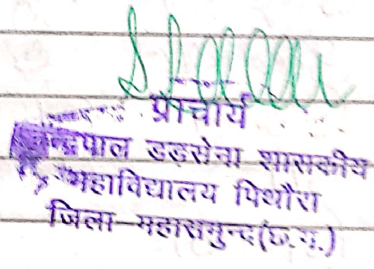 प्राचार्य
पाल डड़सेना शासकीय
महाविद्यालय पिथौरा
जिला-महासमुन्द(छ.ग.)